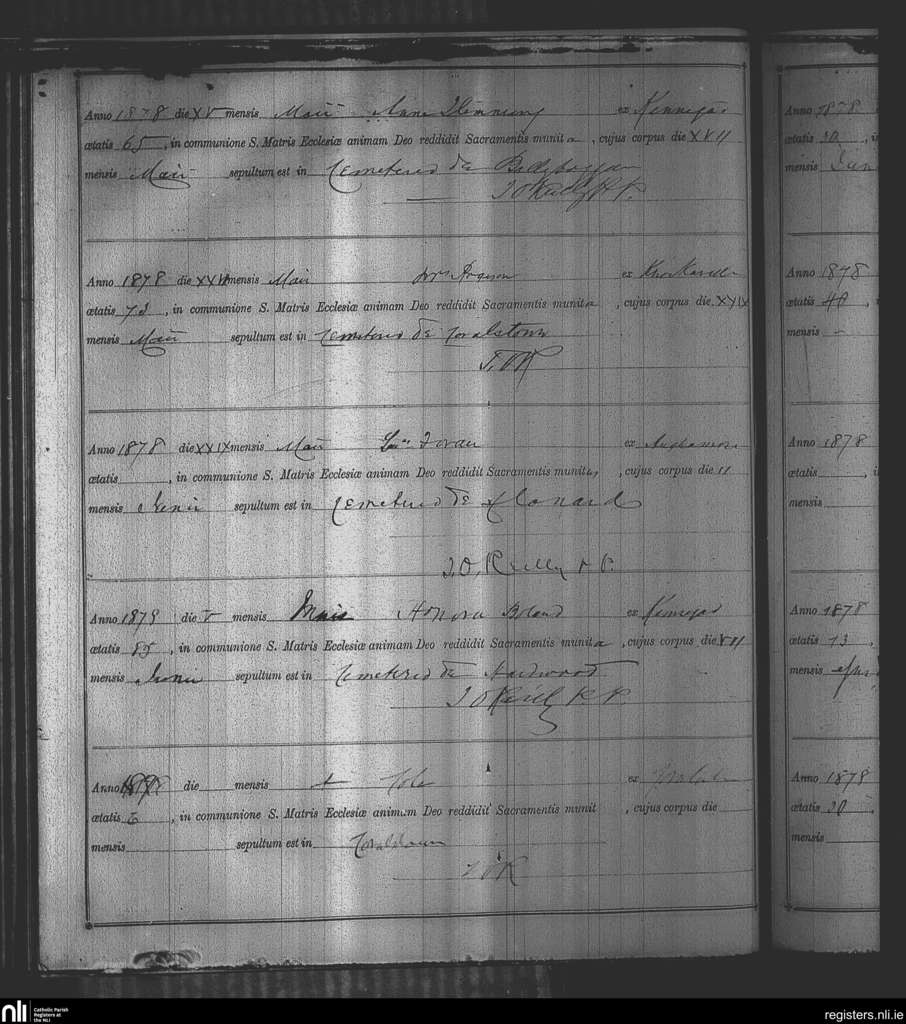 Anno 1878 die XV mensis Maii Anne Flemming ex Kinnegad
ætatis 65, in communione S. Matris Ecclesiæ animam Deo reddidit Sacramentis munita, cujus corpus die XVII
mensis Maii sepultum est in Cemeterio de
J O'Reilly P.P.
Anno 1878 die mensis Maii ex
ætatis 73, in communione S. Matris Ecclesiæ animam Deo reddidit Sacramentis munita, cujus corpus die XXIX
mensis Maii sepultum est in Cemeterio de Coralstown
J. OR
Anno 1878 die XXIX mensis Maii ex
ætatis , in communione S. Matris Ecclesiæ animam Deo reddidit Sacramentis munitus, cujus corpus die 11
mensis Junii sepultum est in Cemeterio de Clonard
J O'Reilly P.P.
Anno 1878 die V mensis Honora Boland ex Kinnegad
ætatis 85, in communione S. Matris Ecclesiæ animam Deo reddidit Sacramentis munita, cujus corpus die VII
mensis sepultum est in Cemeterio de Hardwood
J O'Reilly P.P.
Anno 1878 die mensis ex
ætatis , in communione S. Matris Ecclesiæ animam Deo reddidit Sacramentis munit , cujus corpus die
mensis sepultum est in Coralstown
J OR
Anno 1878
ætatis 30, i
mensis
Anno 1878
ætatis 40, i
mensis
Anno 1878
ætatis , i
mensis
Anno 1878
ætatis 13,
mensis
Anno 1878
ætatis 30,
mensis
nli
Catholic Parish
Registers at
the NLI
registers.nli.ie